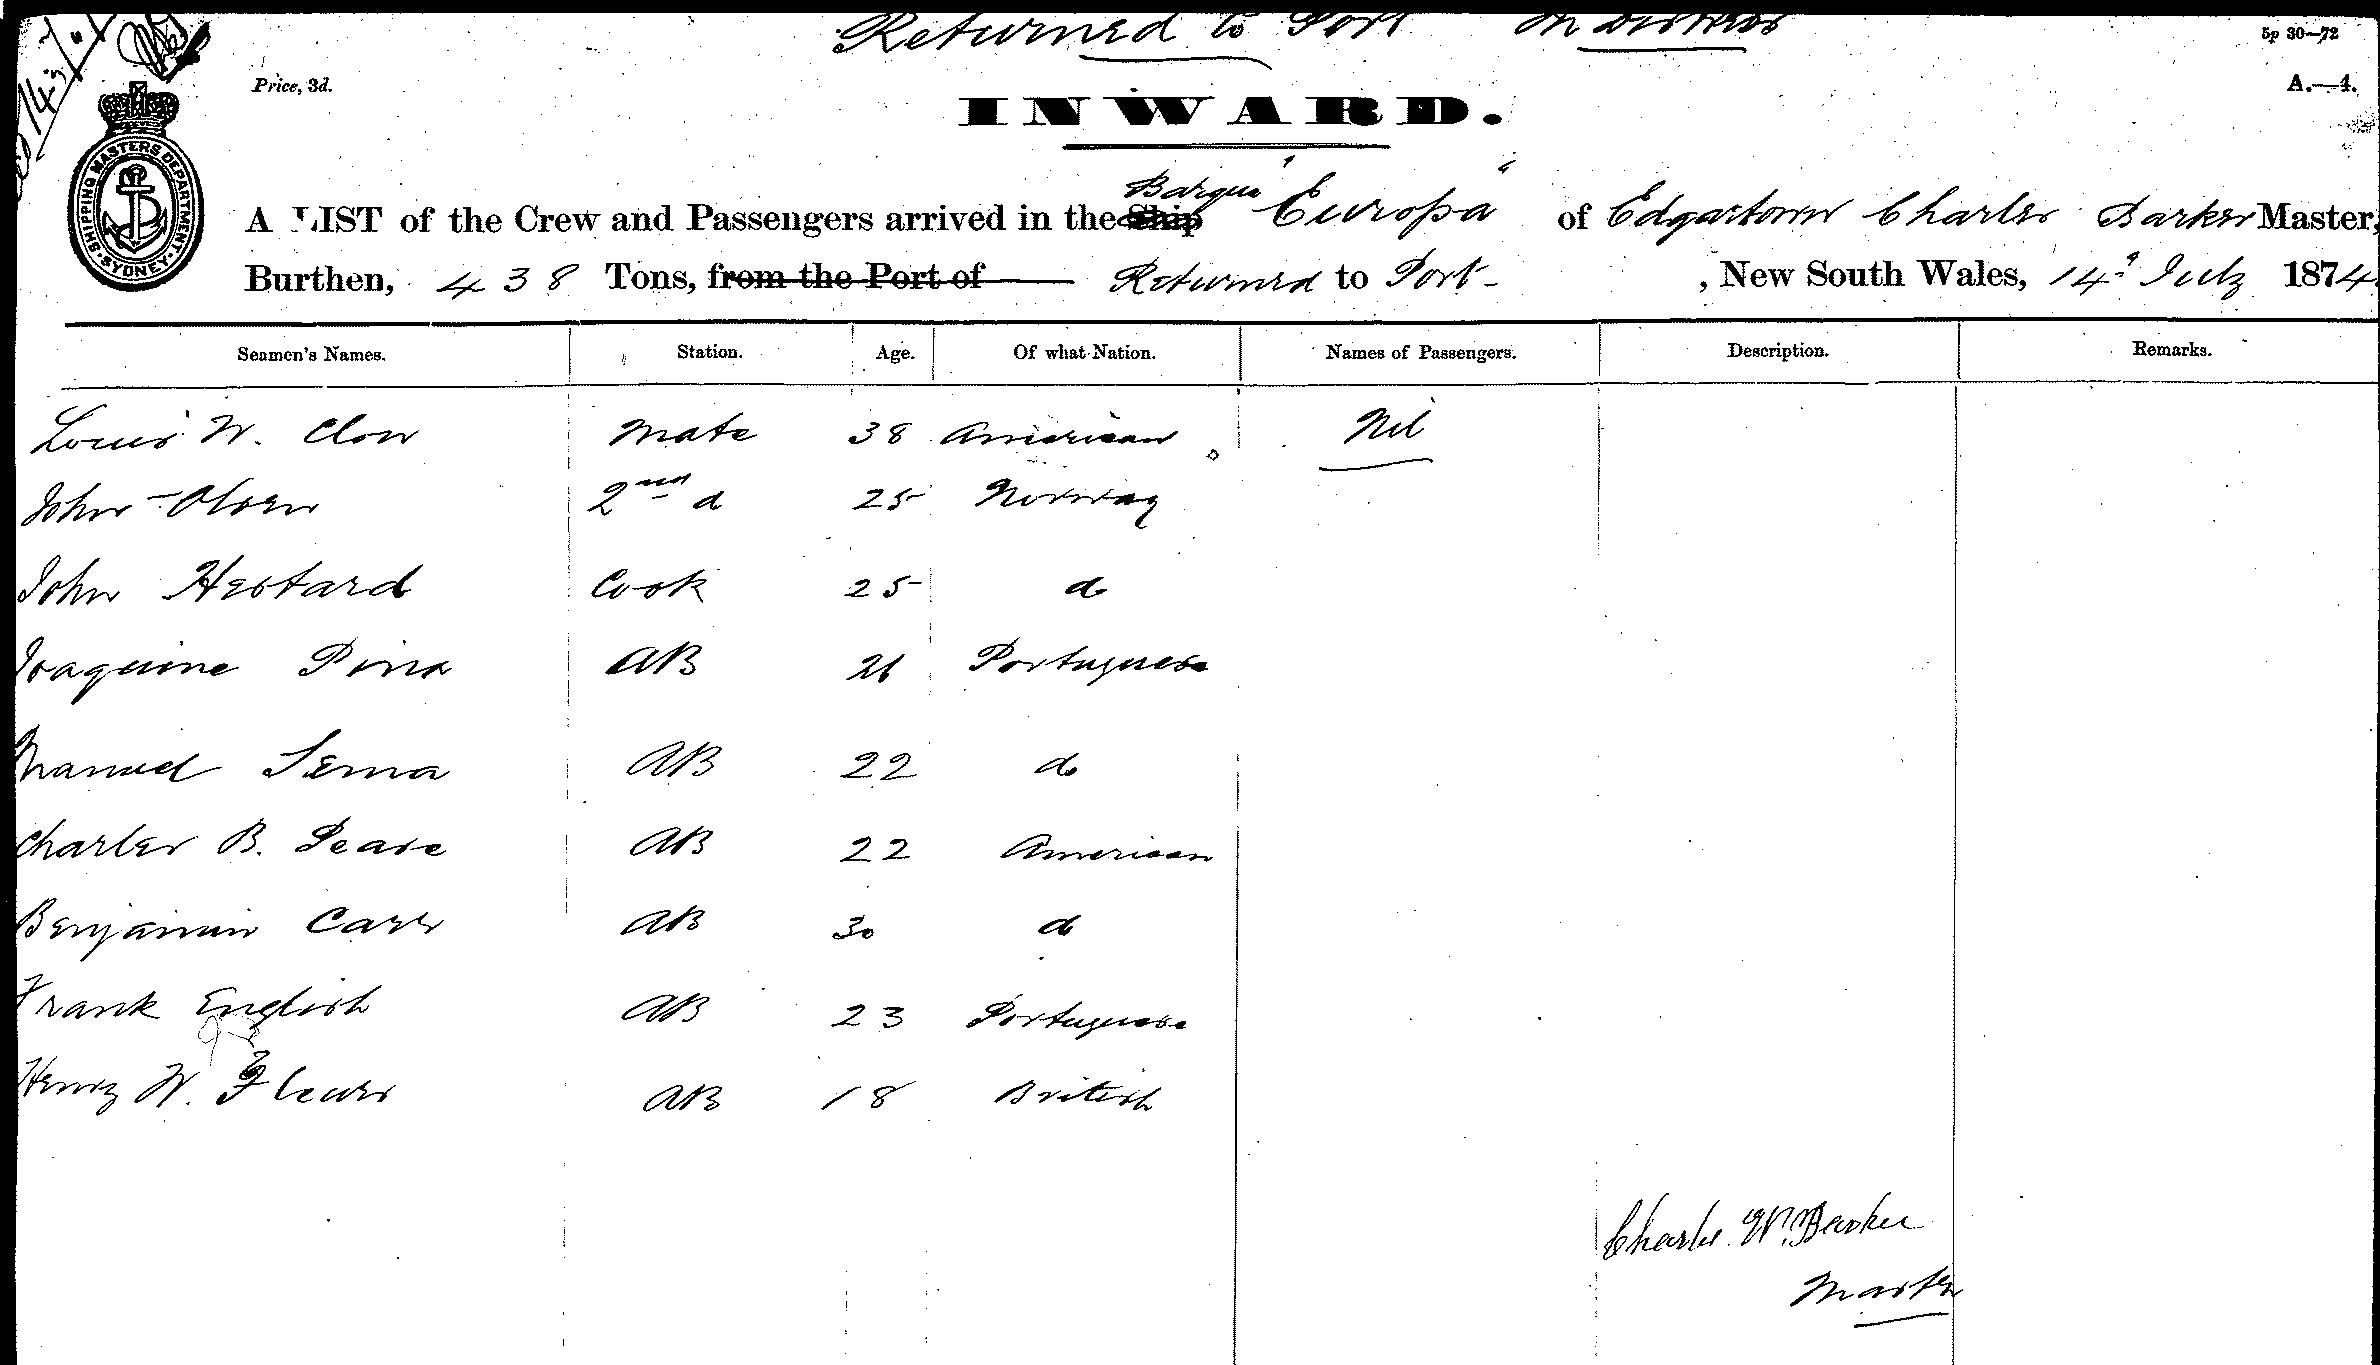 Returned to Port In Distress
5p 30—72
Price, 3d.
A.—4.
INWARD.
SHIPPING MASTERS DEPARTMENT SYDNEY
Barque
A LIST of the Crew and Passengers arrived in the Ship "Europa" of Edgartown Charles Barker Master,
Burthen, 438 Tons, from the Port of Returned to Port - , New South Wales, 14th July 1874
Seamen's Names. Station. Age. Of what Nation. Names of Passengers. Description. Remarks.
Louis W. Clow Mate 38 American Nil
John Olsen 2nd d 25 Norway
John Hestard Cook 25 do
Joaquine Pina AB 21 Portuguese
Manuel Sema AB 22 do
Charles B. Pease AB 22 American
Benjamin Carr AB 30 do
Frank English AB 23 Portuguese
Henry W. Flewer AB 18 British
Charles W. Barker
Master